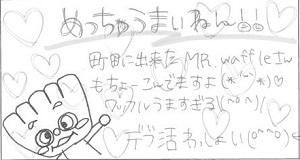 めっちゃうまいねん!!
町田に出来た MR. waffle
もちょーこんでますよ(*^^*)♡
ワッフルうますぎる(^o^)/
デブ活わっしょい(o^^o)